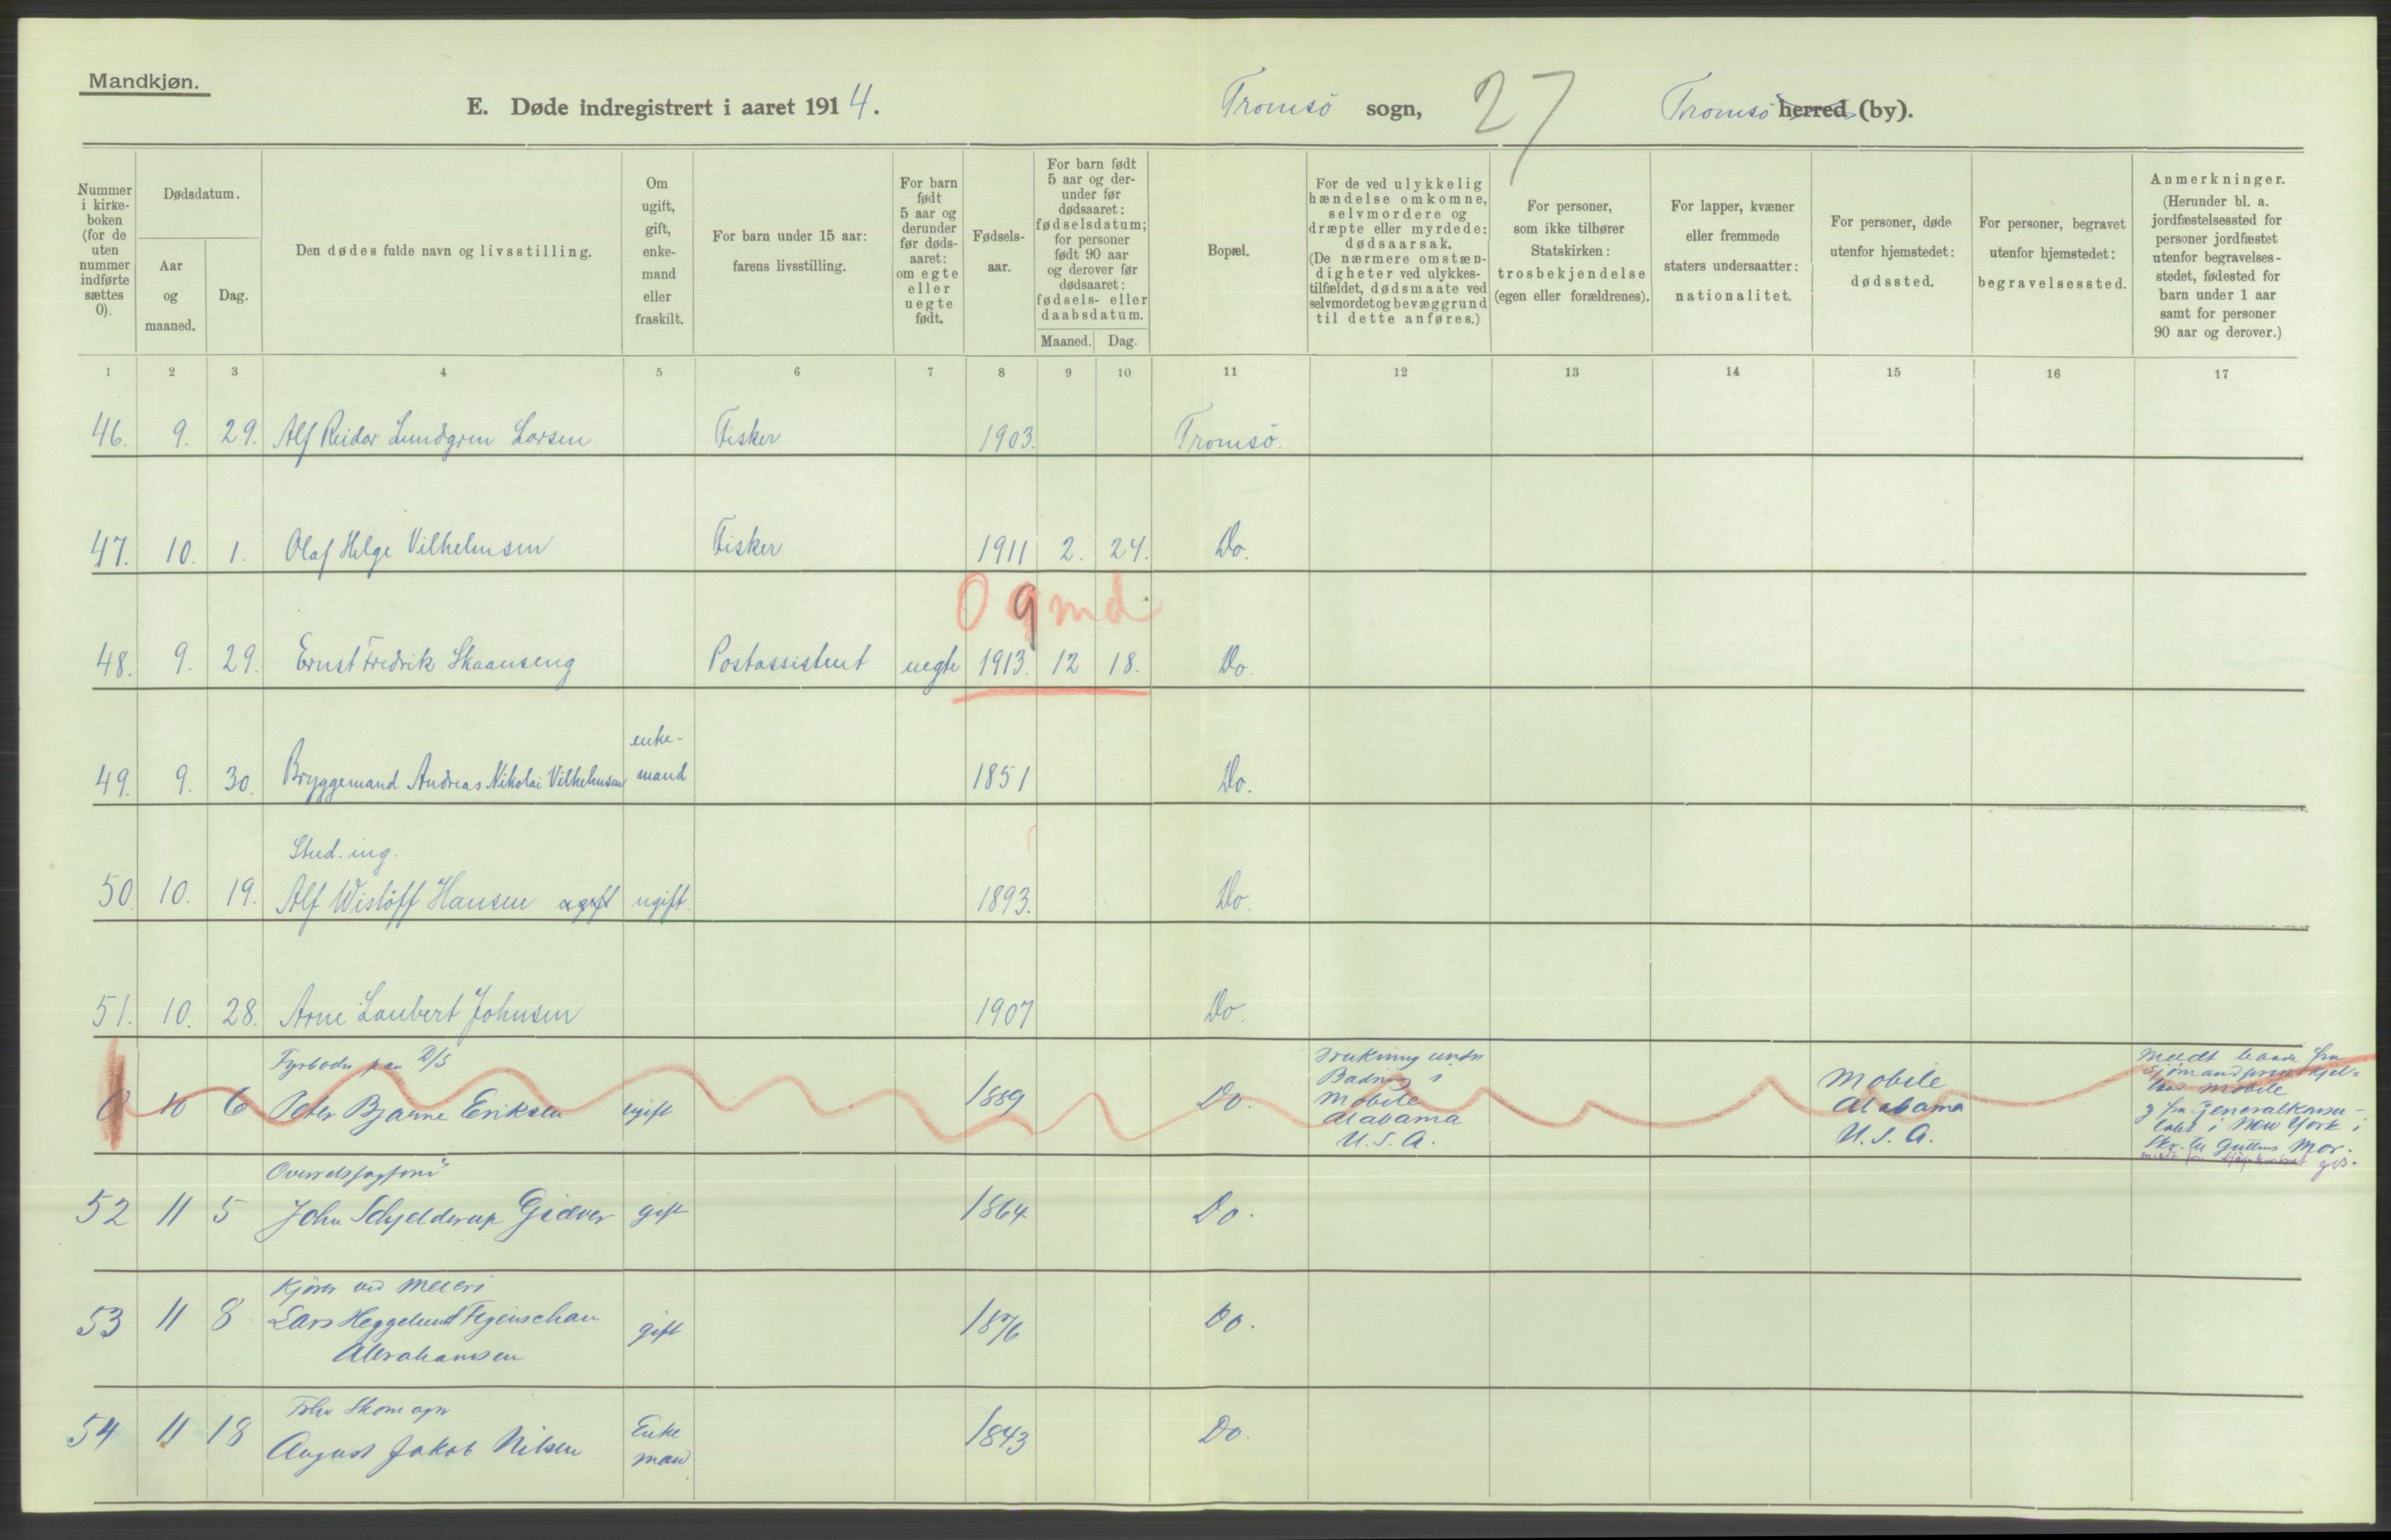 Mandkjøn.
E. Døde indregistrert i aaret 1914.
Tromsö sogn,
27
Tromsö herred (by).
Nummer i kirke-boken (for de uten nummer indførte sættes 0).
Dødsdatum.
Aar og maaned.
Dag.
Den dødes fulde navn og livsstilling.
Om ugift, gift, enke-mand eller fraskilt.
For barn under 15 aar: farens livsstilling.
For barn født 5 aar og derunder før døds-aaret: om egte eller uegte født.
Fødsels-aar.
For barn født 5 aar og der-under før dødsaaret: fødselsdatum; for personer født 90 aar og derover før dødsaaret: fødsels- eller daabsdatum.
Maaned.
Dag.
Bopæl.
For de ved ulykkelig hændelse omkomne, selvmordere og dræpte eller myrdede: dødsaarsak. (De nærmere omstæn-digheter ved ulykkes-tilfældet, dødsmaate ved selvmordet og bevæggrund til dette anføres.)
For personer, som ikke tilhører Statskirken: trosbekjendelse (egen eller forældrenes).
For lapper, kvæner eller fremmede staters undersaatter: nationalitet.
For personer, døde utenfor hjemstedet: dødssted.
For personer, begravet utenfor hjemstedet: begravelsessted.
Anmerkninger. (Herunder bl. a. jordfæstelsessted for personer jordfæstet utenfor begravelses-stedet, fødested for barn under 1 aar samt for personer 90 aar og derover.)
1 2 3 4 5 6 7 8 9 10 11 12 13 14 15 16 17
46. 9. 29. Alf Reidar Lundgren Larsen Fisker 1903. Tromsö.
47. 10. 1. Olaf Helge Vilhelmsen Fisker 1911 2. 24. Do.
0 9 md
48. 9. 29. Ernst Fredrik Skaanseng Postassistent uegte 1913. 12 18. Do.
enke-
49. 9. 30. Bryggemand Andreas Nikolai Vilhelmsen mand 1851 Do.
Stud. ing.
50. 10. 19. Alf Wislöff Hansen ugift ugift. 1893. Do.
51. 10. 28. Arne Lambert Johnsen 1907 Do.
Fyrböder paa D/S
0 10 6 Peter Bjarne Eriksen ugift 1889 Do.
Drukning under
Badning i
Mobile
Alabama
U.S.A.
Mobile
Alabama
U.S.A.
Meldt baade fra
Sjömandspræst
Mobile
Generalkonsu-
latet i New York i
Skr. til Guttens Mor.
Overretssagförer
52 11 5 John Schjelderup Giæver gift 1864 Do.
Kjörer ved Meieri
53 11 8 Lars Heggelund Figenschau gift 1876 Do.
Abrahamsen
Skomager
54 11 18 August Jakob Nilsen Enke 1843 Do.
man